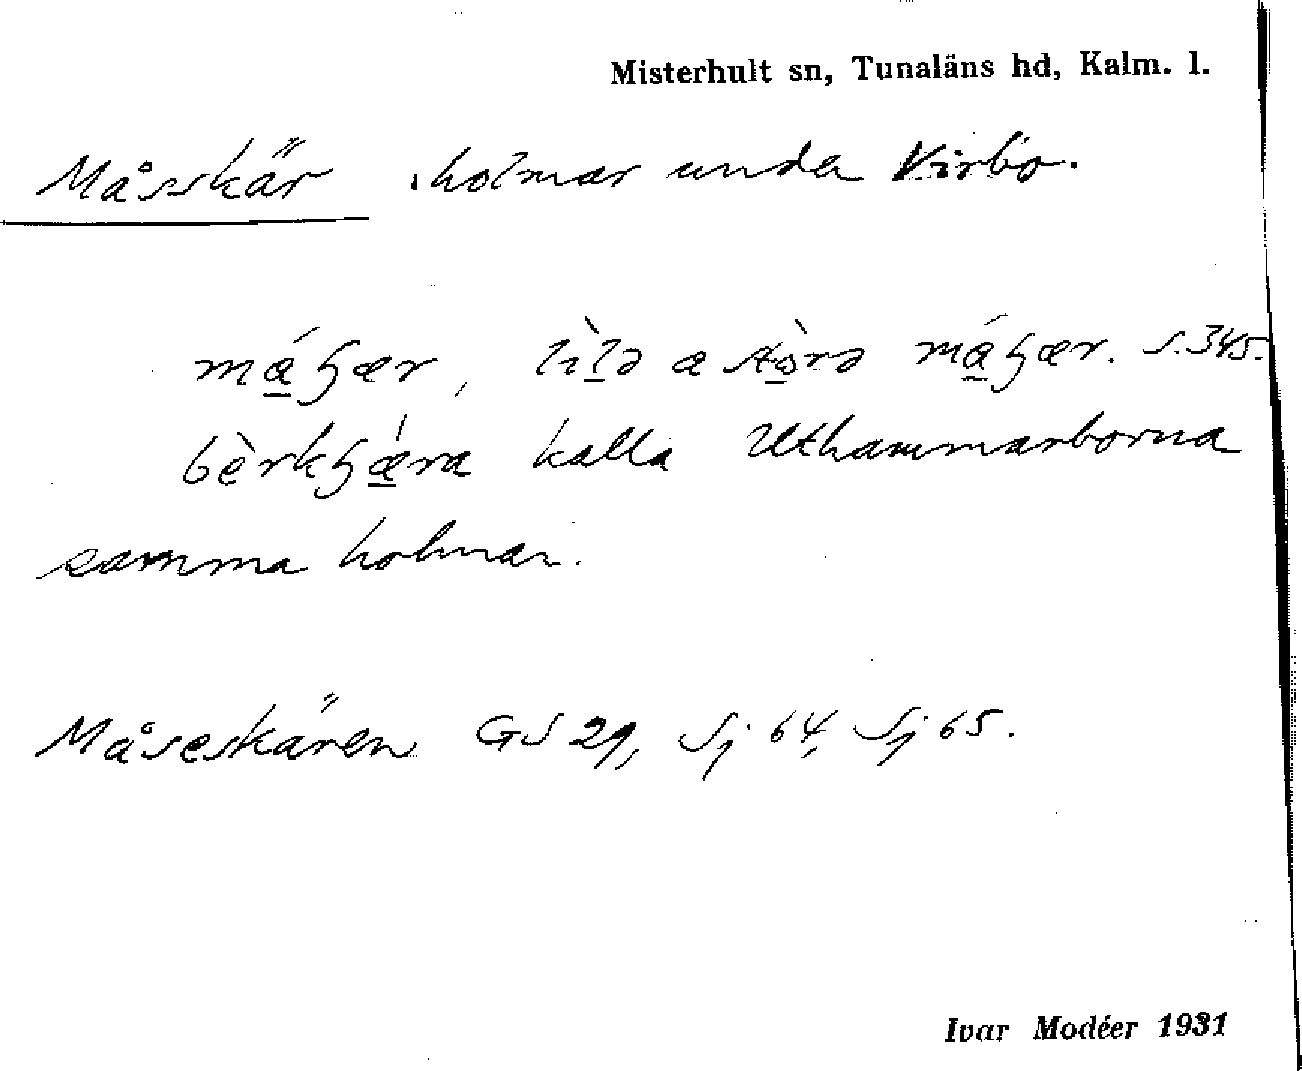 Misterhult sn, Tunaläns hd, Kalm. l.
Måsskär, holmar under Virbo.
má̱ɧær, lìl̠ə æ stò̱rə má̱ɧær. S. 345.
bèrkɧǽ̱ra kalla Uthammarborna
samma holmar.
Måseskären GS 29, Sj 64, Sj 65.
Ivar Modéer 1931